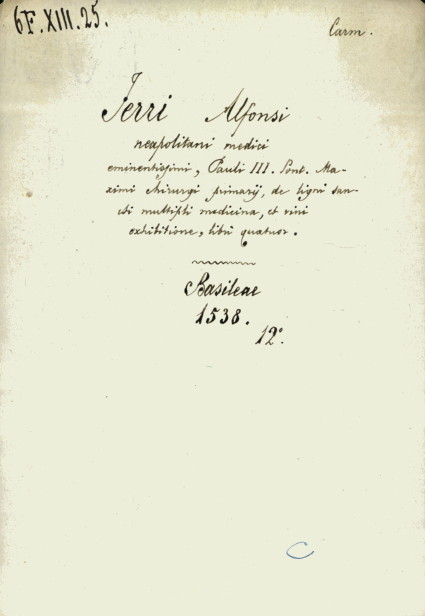 6F.XIII.25.
Carm.
Ferri Alfonsi
neapolitani medici
eminentissimi, Pauli III. Pont. Ma-
ximi chirurgi primarij, de ligni san-
cti multipli medicina, et vini
exhibitione, libri quatuor.
Basileae
1538.
12°.
C